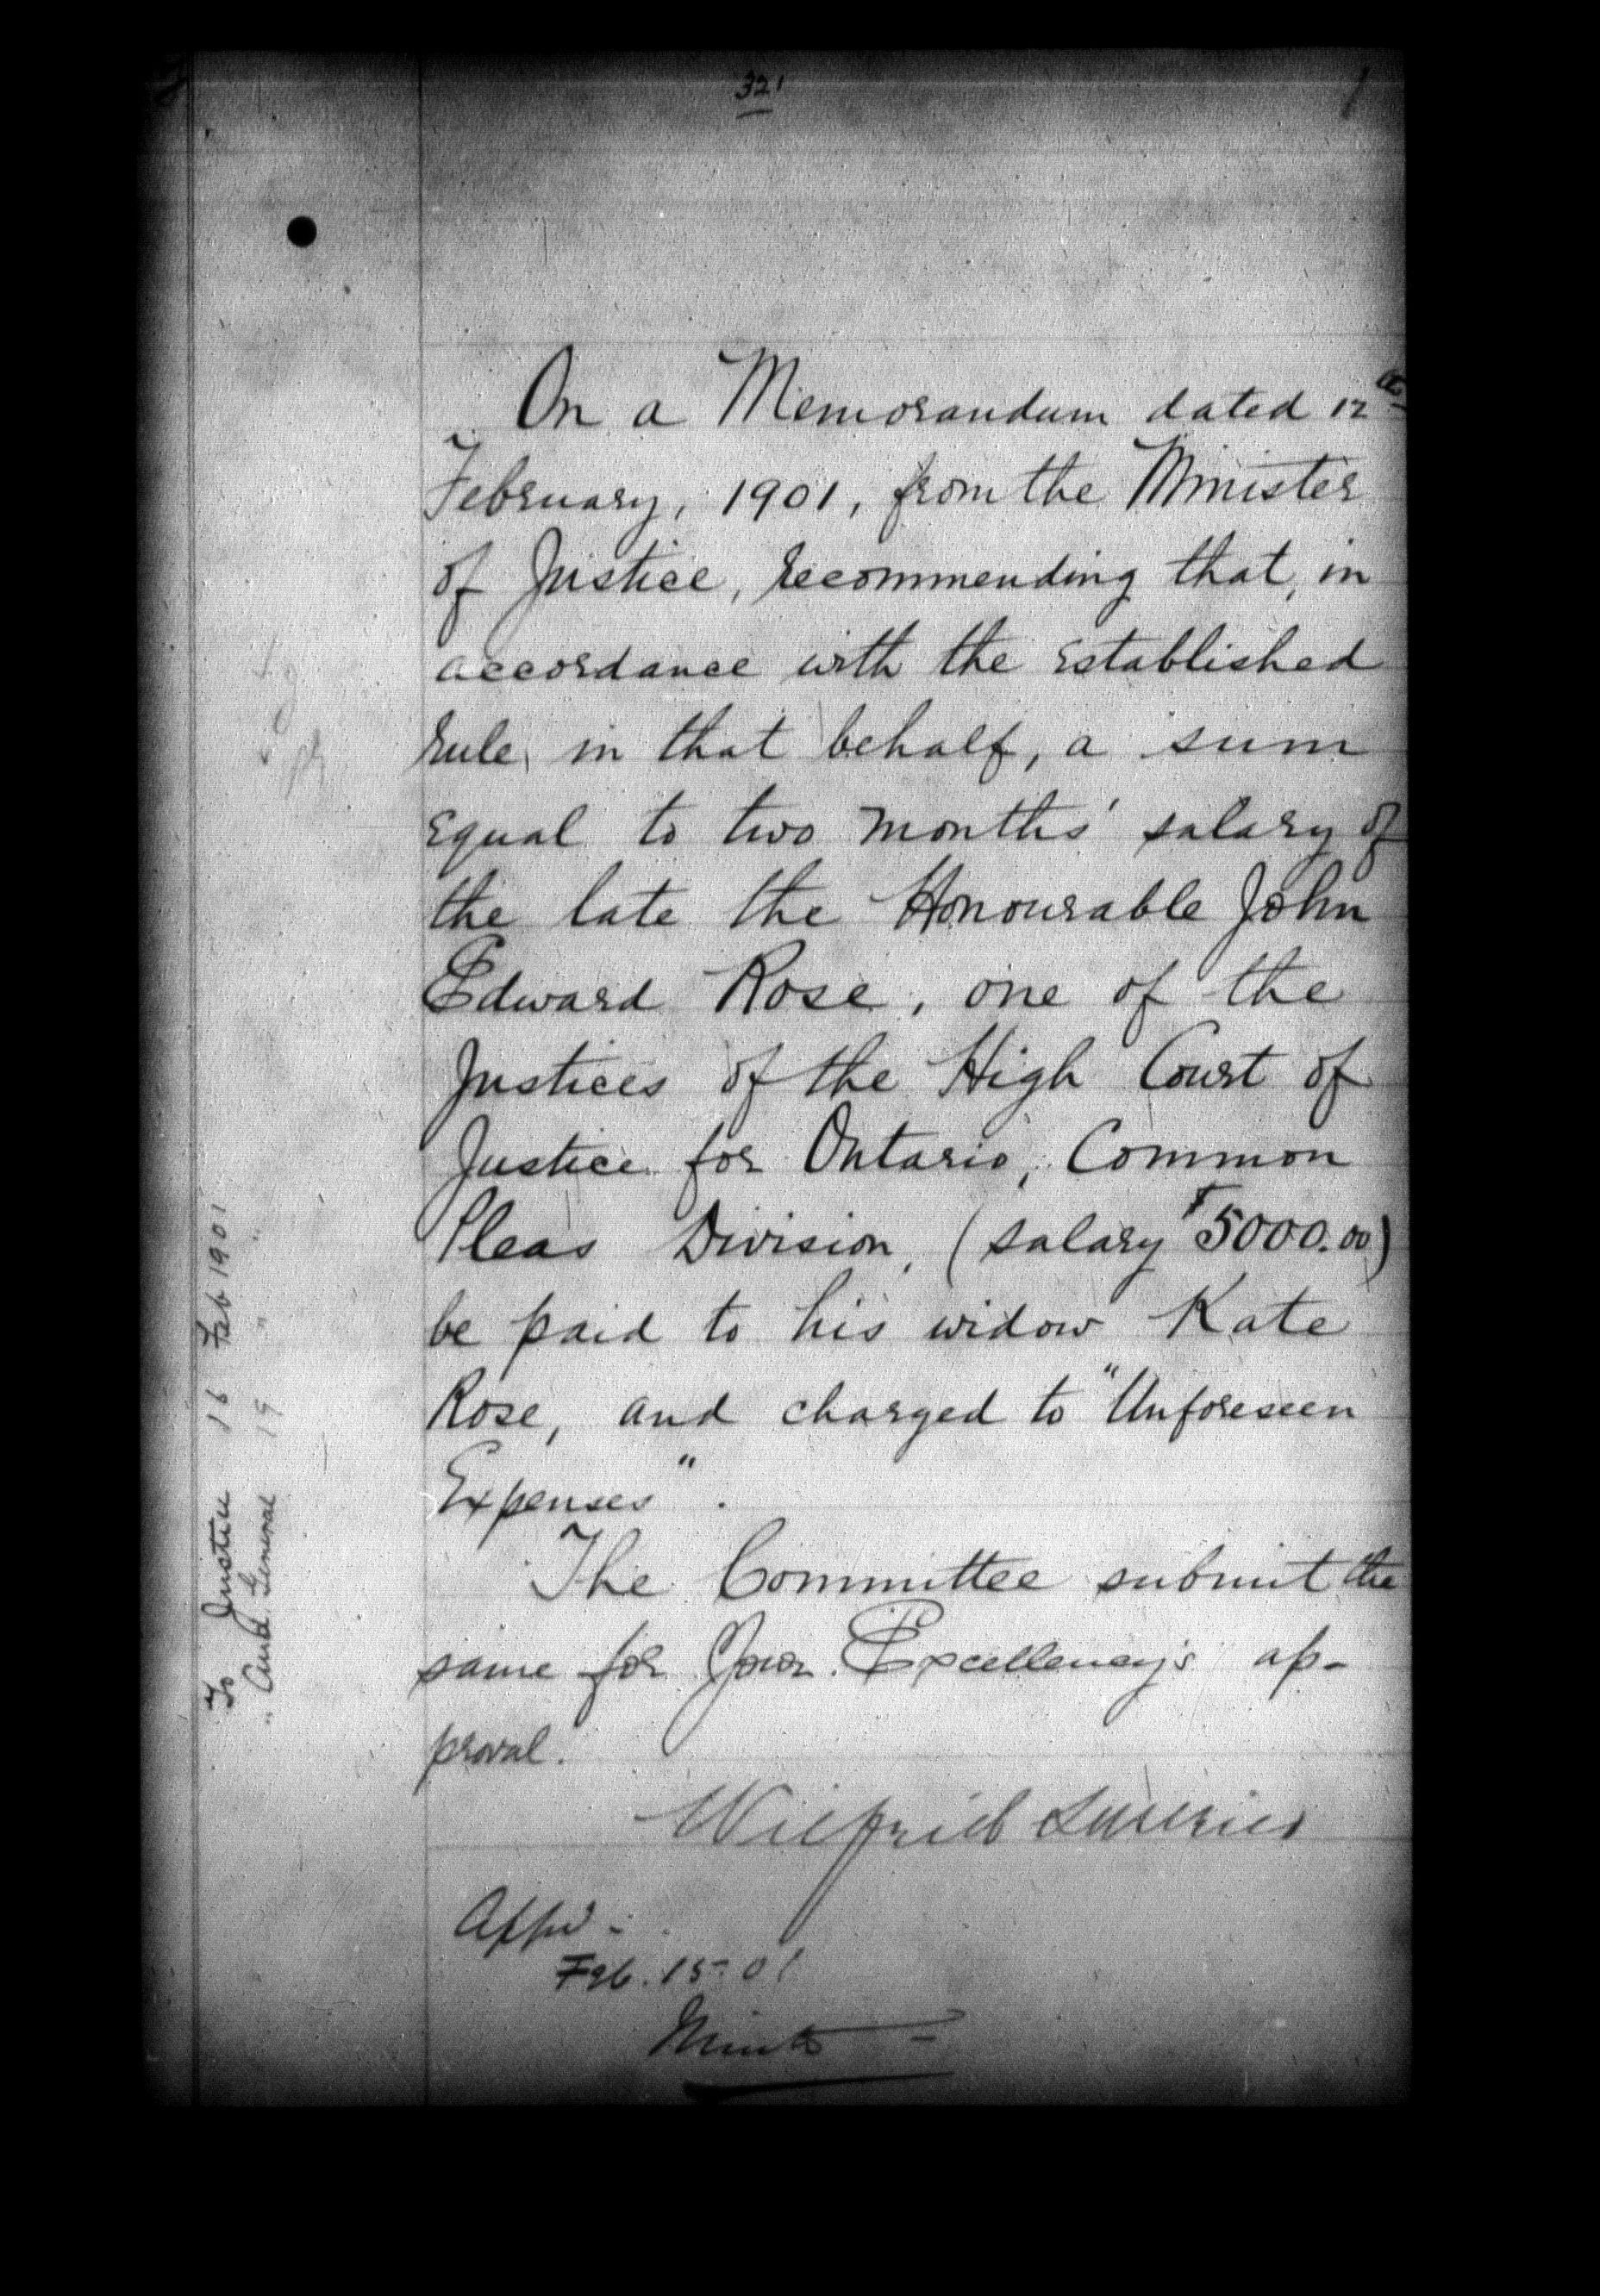 321
On a Memorandum dated 12th
February, 1901, from the Minister
of Justice, recommending that, in
accordance with the established
rule, in that behalf, a sum
equal to two months' salary of
the late the Honourable John
Edward Rose, one of the
Justices of the High Court of
Justice for Ontario, Common
Pleas Division, (salary $5000.00)
be paid to his widow Kate
Rose, and charged to "Unforeseen
Expenses".
The Committee submit the
same for Your Excellency's ap-
proval.
Wilfrid Laurier
Appd -
Feb. 15. 01
Minto
To Justice 16 Feb 1901
" Aud. General 19 " "